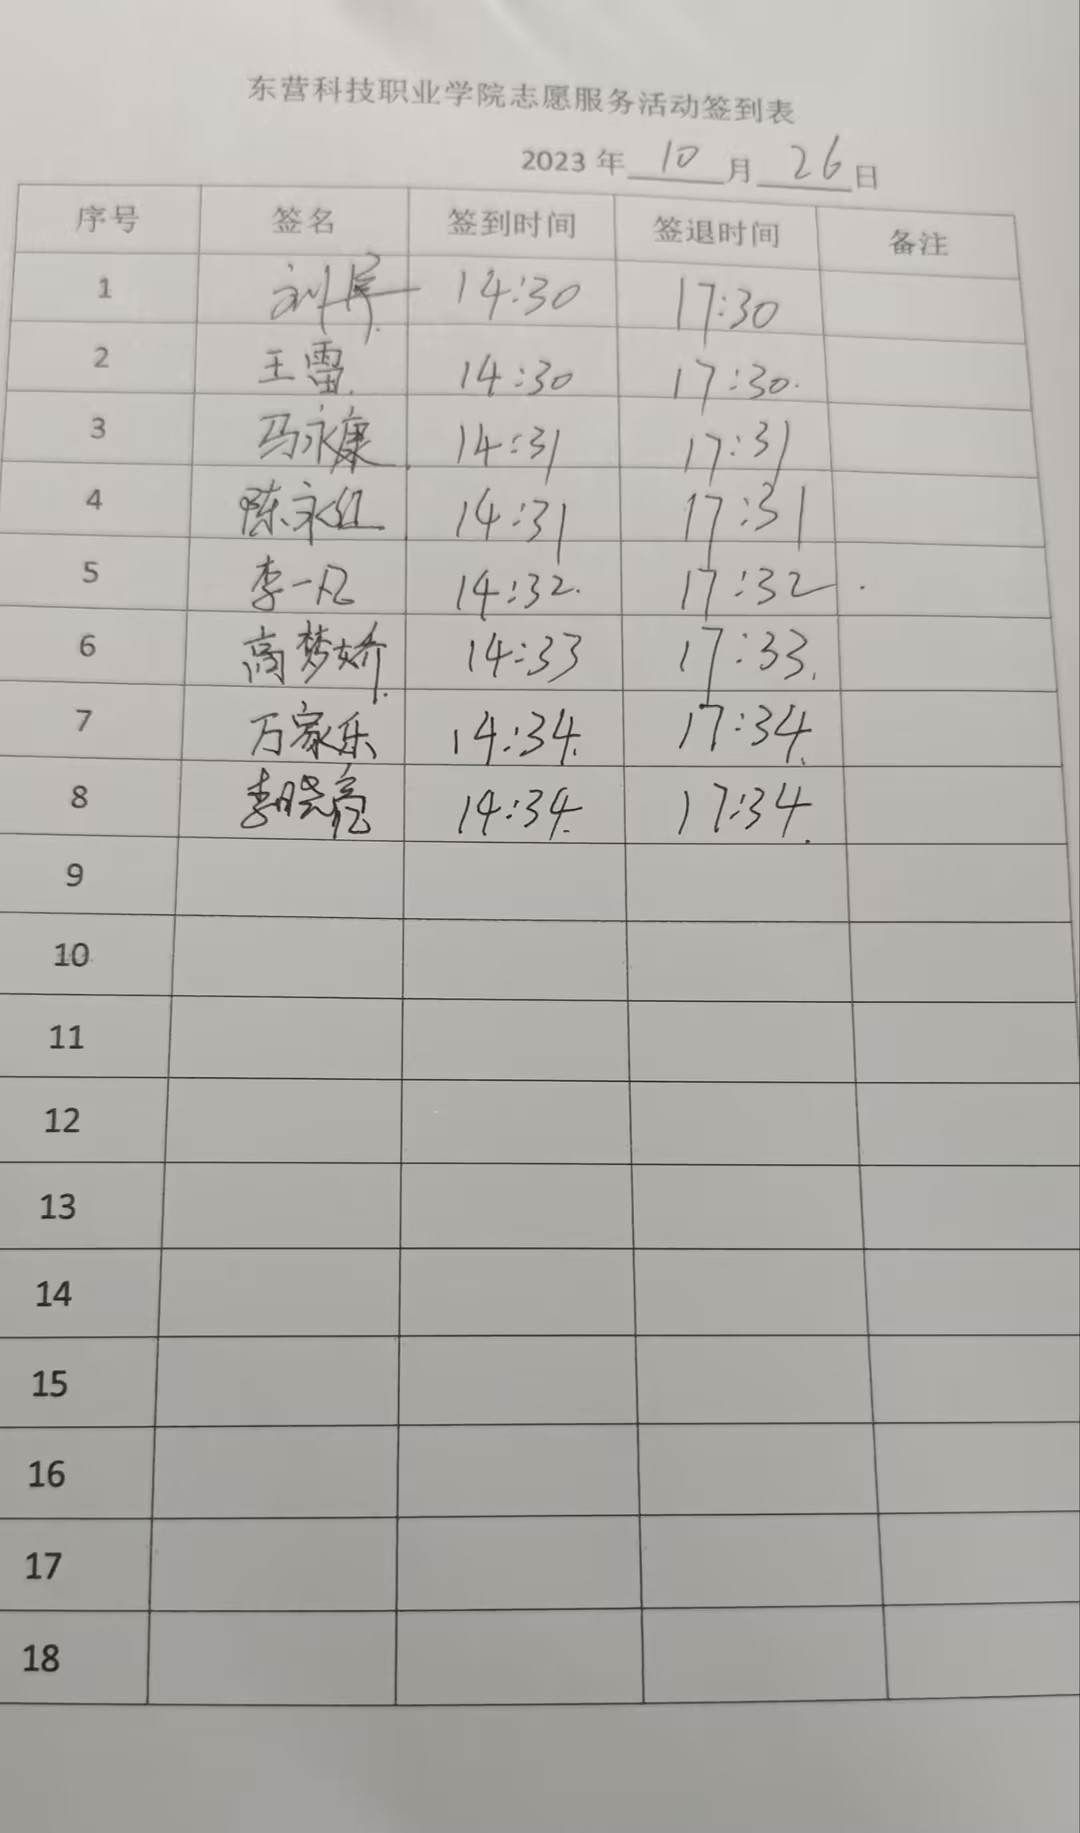 东营科技职业学院志愿服务活动签到表
2023 年 10 月 26 日
序号 签名 签到时间 签退时间 备注
1 刘 14:30 17:30
2 王雷 14:30 17:30
3 马永康 14:31 17:31
4 陈永红 14:31 17:31
5 李一凡 14:32 17:32
6 高梦娇 14:33 17:33
7 万家乐 14:34 17:34
8 李晓亮 14:34 17:34
9
10
11
12
13
14
15
16
17
18